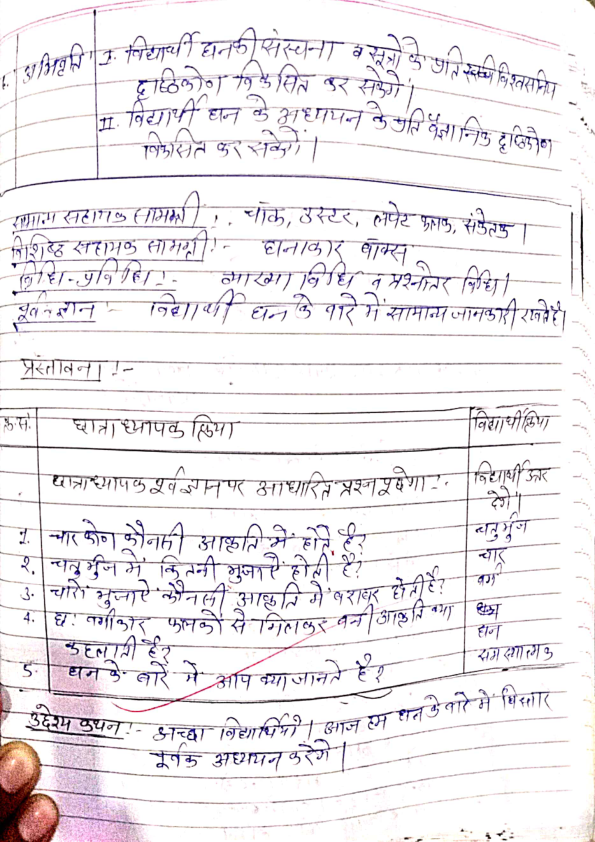 अभिवृति I. विद्यार्थी घनकी संरचना व सूत्रों के प्रति विश्वसनिय
दृष्टिकोण विकसित कर सकेंगे।
II. विद्यार्थी घन के अध्यापन के प्रति वैज्ञानिक दृष्टिकोण
विकसित कर सकेंगे।
सामान्य सहायक सामग्री :- चॉक, डस्टर, लपेट फलक, संकेतक।
विशिष्ठ सहायक सामग्री:- घनाकार बॉक्स
विधि-प्रविधि:- व्याख्या विधि व प्रश्नोतर विधि।
पूर्वज्ञान:- विद्यार्थी घन के बारे में सामान्य जानकारी रखते है।
प्रस्तावना:-
क्र.सं. छात्राध्यापक क्रिया विद्यार्थी क्रिया
छात्राध्यापक पूर्वज्ञान पर आधारित प्रश्न पूछेगा:- विद्यार्थी उत्तर
देंगे।
1. चार कोण कौनसी आकृति में होते है? चतुर्भुज
2. चतुर्भुज में कितनी भुजाऐं होती है? चार
3. चारों भुजाऐं कौनसी आकृति में बराबर होती है? वर्ग
4. छः वर्गाकार फलकों से मिलकर बनी आकृति क्या
कहलाती है? घन
5. घन के बारे में आप क्या जानते है? समस्यात्मक
उद्देश्य कथन:- अच्छा विद्यार्थियों। आज हम घन के बारे में विस्तार
पूर्वक अध्ययन करेंगे।